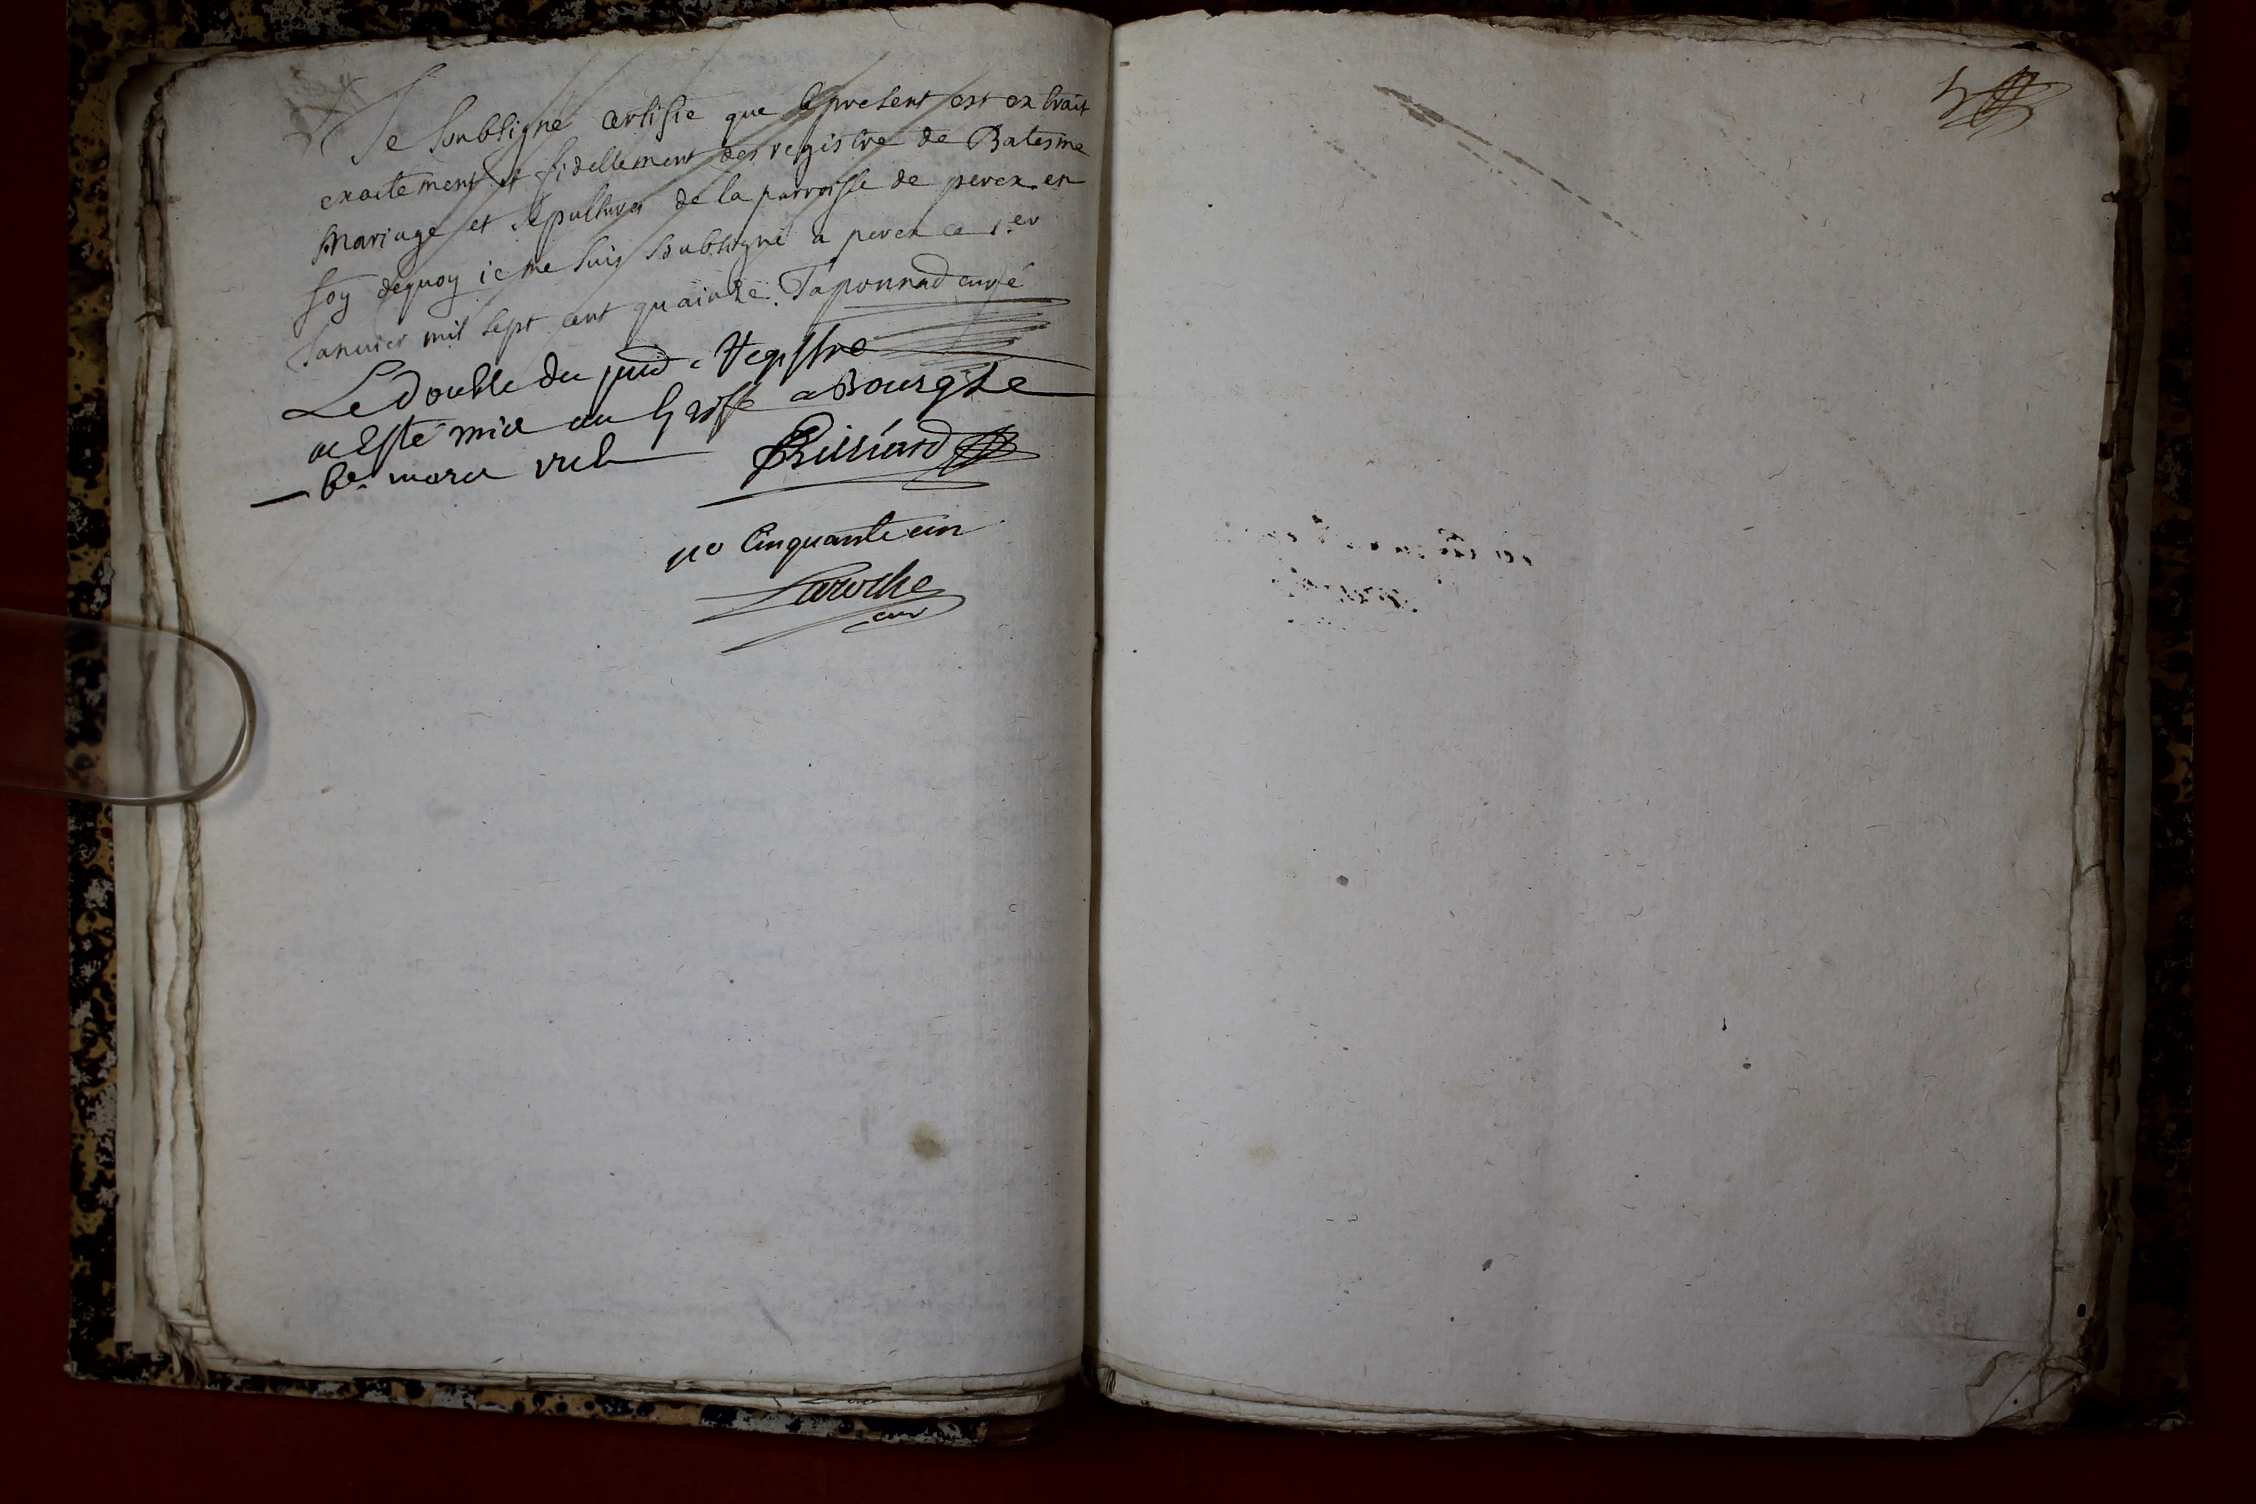 Je soubsigné certifie que le present est extrait
exactement et fidellement des registre de Batesme
mariage et sepultures de la parroisse de perex en
foy dequoy ie me suis soubsigné a perex ce 1er
Janvier mil sept cent quainze. Taponnad curé
Le double du pnt Registre
a esté mis au Greffe a Bourg Le
6e mars
no Cinquante un
Laroche